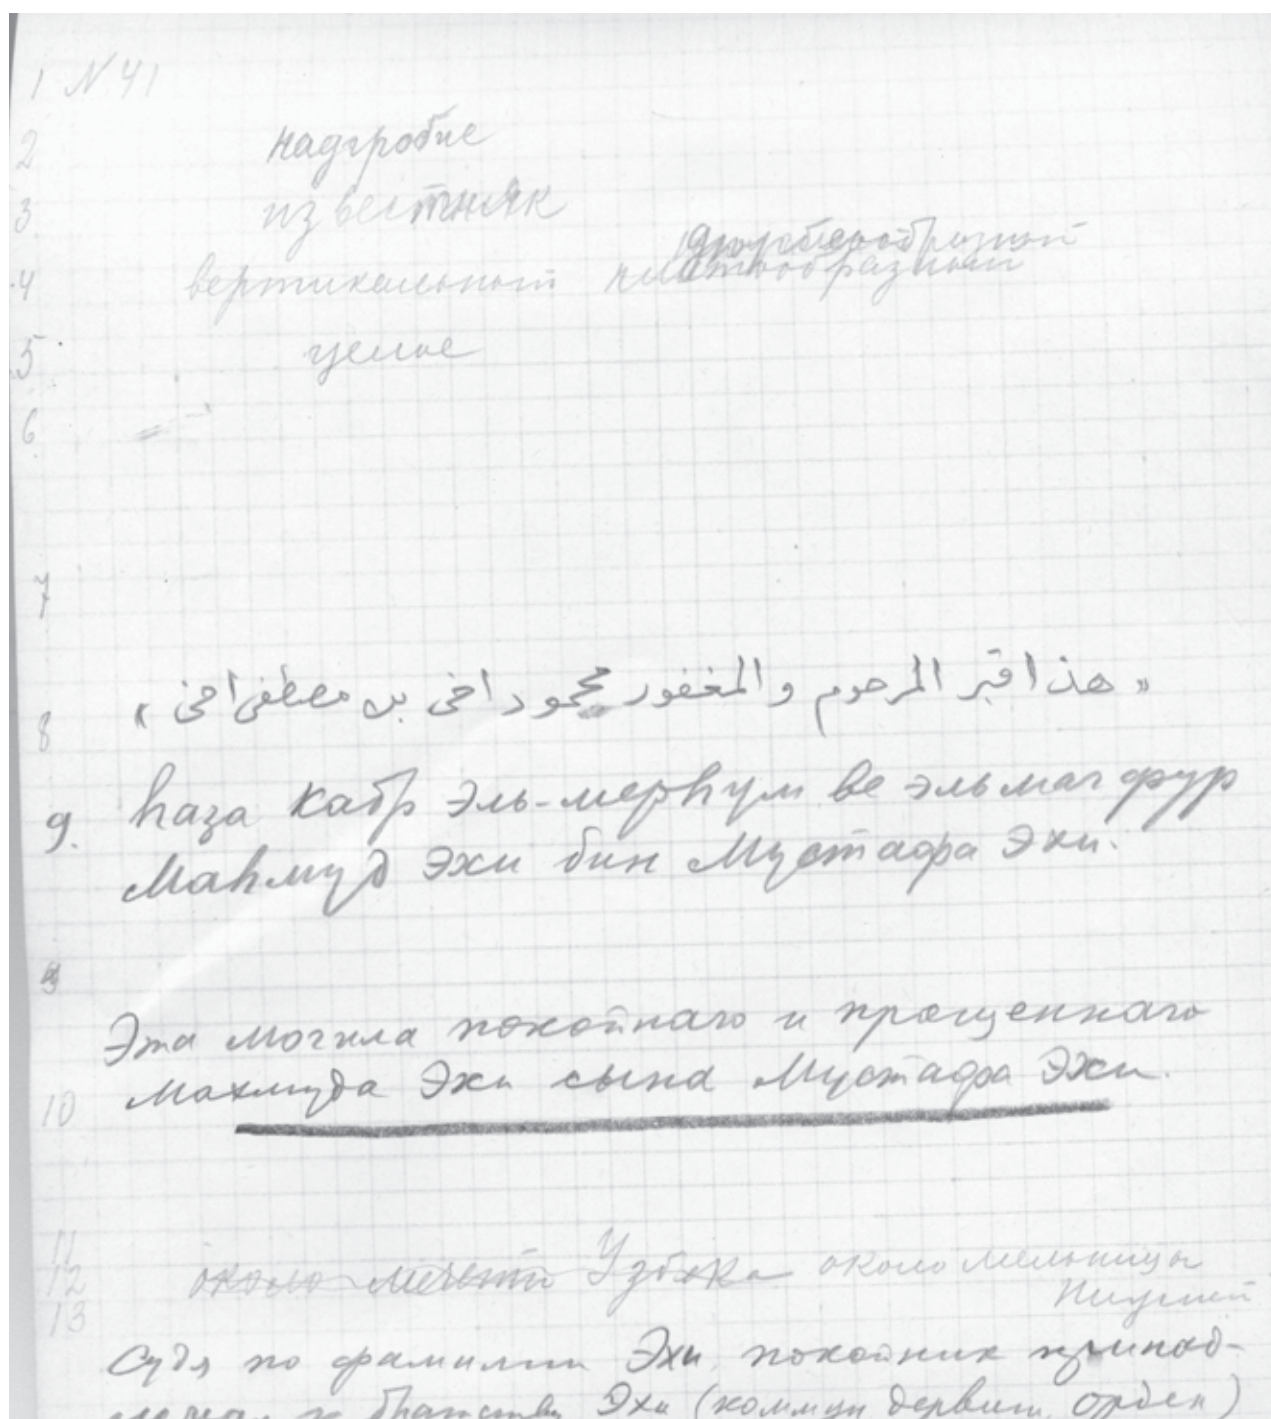 1 N 41
2 надгробие
3 известняк
4 вертикальный
5 целое
6
7
8 « هذا قبر المرحوم والمغفور محمود اخى بن مصطفى اخى »
9. hаза кабр эль-мерhум ве эль магфур
Маhмуд Эхи бин Мустафа Эхи.
9
Эта могила покойнаго и прощеннаго
10 Махмуда Эхи сына Мустафа Эхи.
11
12 около мечети Узбека около мельницы
13
Судя по фамилии Эхи покойник принад-
лежал к братству Эхи (коммун дервиш. орден)